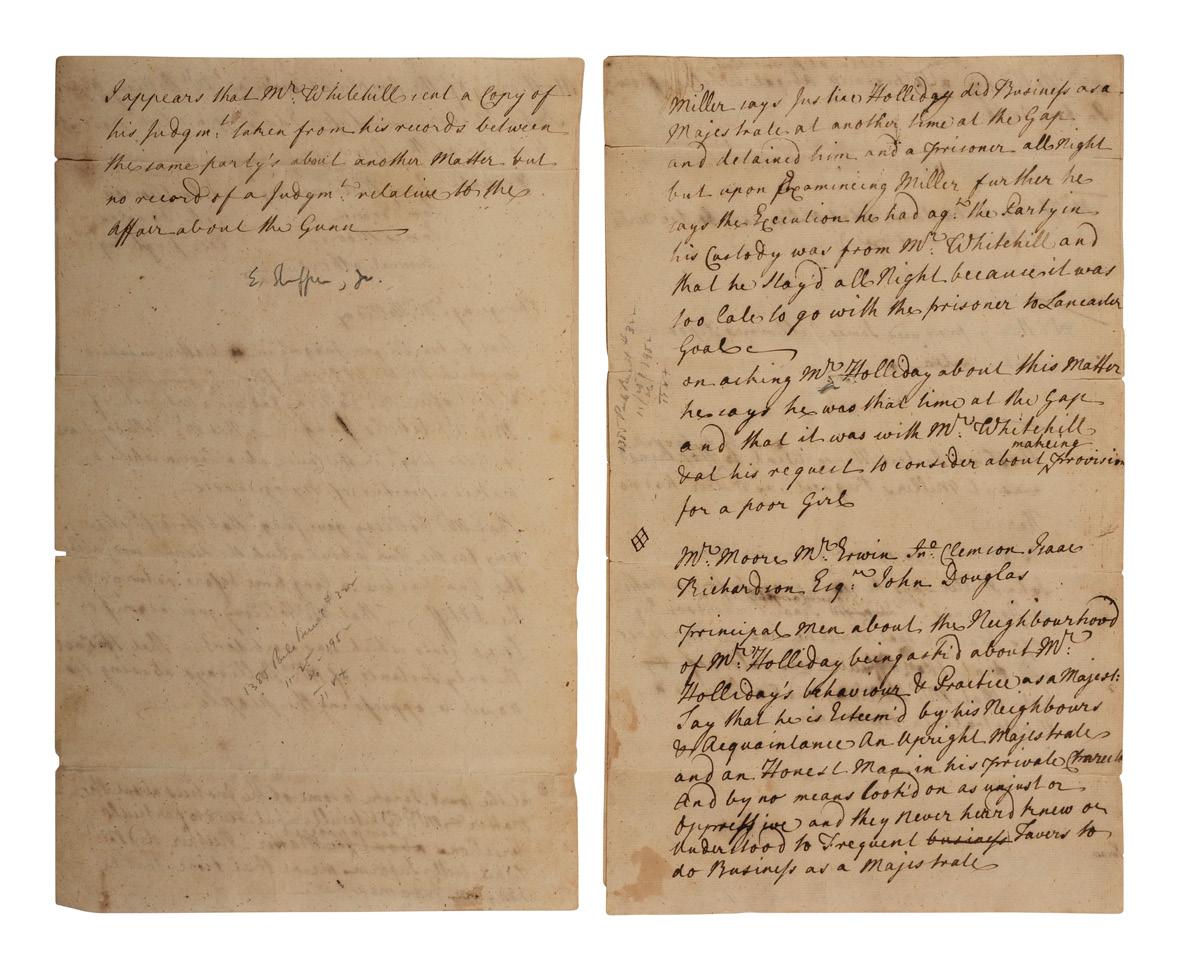 I appears that Mr. Whitehill sent a Copy of
his Judgmt. taken from his records between
the same party's about another Matter but
no record of a Judgmt. relative to the
affair about the Gunn
Miller says Justice Holliday did Business as a
Majestrate at another time at the Gap
and detained him and a prisoner all Night
but upon Examineing Miller further he
says the Execution he had agt. the Party in
his Custody was from Mr. Whitehill and
that he Stay'd all Night because it was
too late to go with the prisoner to Lancaster
Goal
on asking Mr. Holliday about this Matter
he says he was that time at the Gap
and that it was with Mr. Whitehill
& at his request to consider about makeing provision
for a poor Girl
Mr. Moore Mr. Erwin Jno. Clemson Isaac
Richardson Esqr. John Douglas
principal Men about the Neighbourhood
of Mr. Holliday being ask'd about Mr.
Holliday's behaviour & Practice as a Majest:
Say that he is Esteem'd by his Neighbours
& Acquaintance An Upright Majestrate
and an Honest Man in his private
And by no means look'd on as unjust or
Oppressive and they Never heard knew or
Understood to Frequent business Tavers to
do Business as a Majestrate